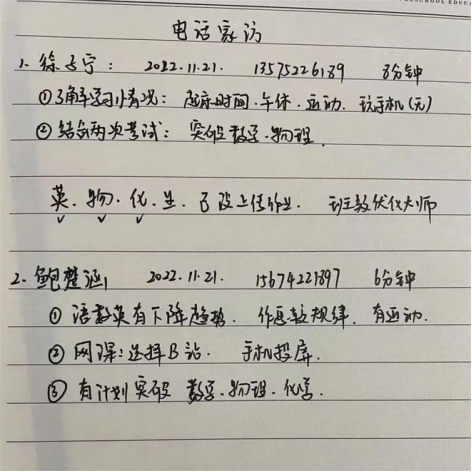 SCHOOL EDUCA
电话家访
1. 徐子宁: 2022.11.21. 13575226189 8分钟
①了解学习情况: 起床时间.午休.运动.玩手机(无)
②结合两次考试: 突破 数学.物理.
英.物.化.生.已没上传作业. 班教优化大师
2. 鲍楚涵 2022.11.21. 15674221897 6分钟
① 语数英有下降趋势. 作息较规律. 有运动.
② 网课:选择B站. 手机投屏.
③ 有计划突破 数学.物理.化学.